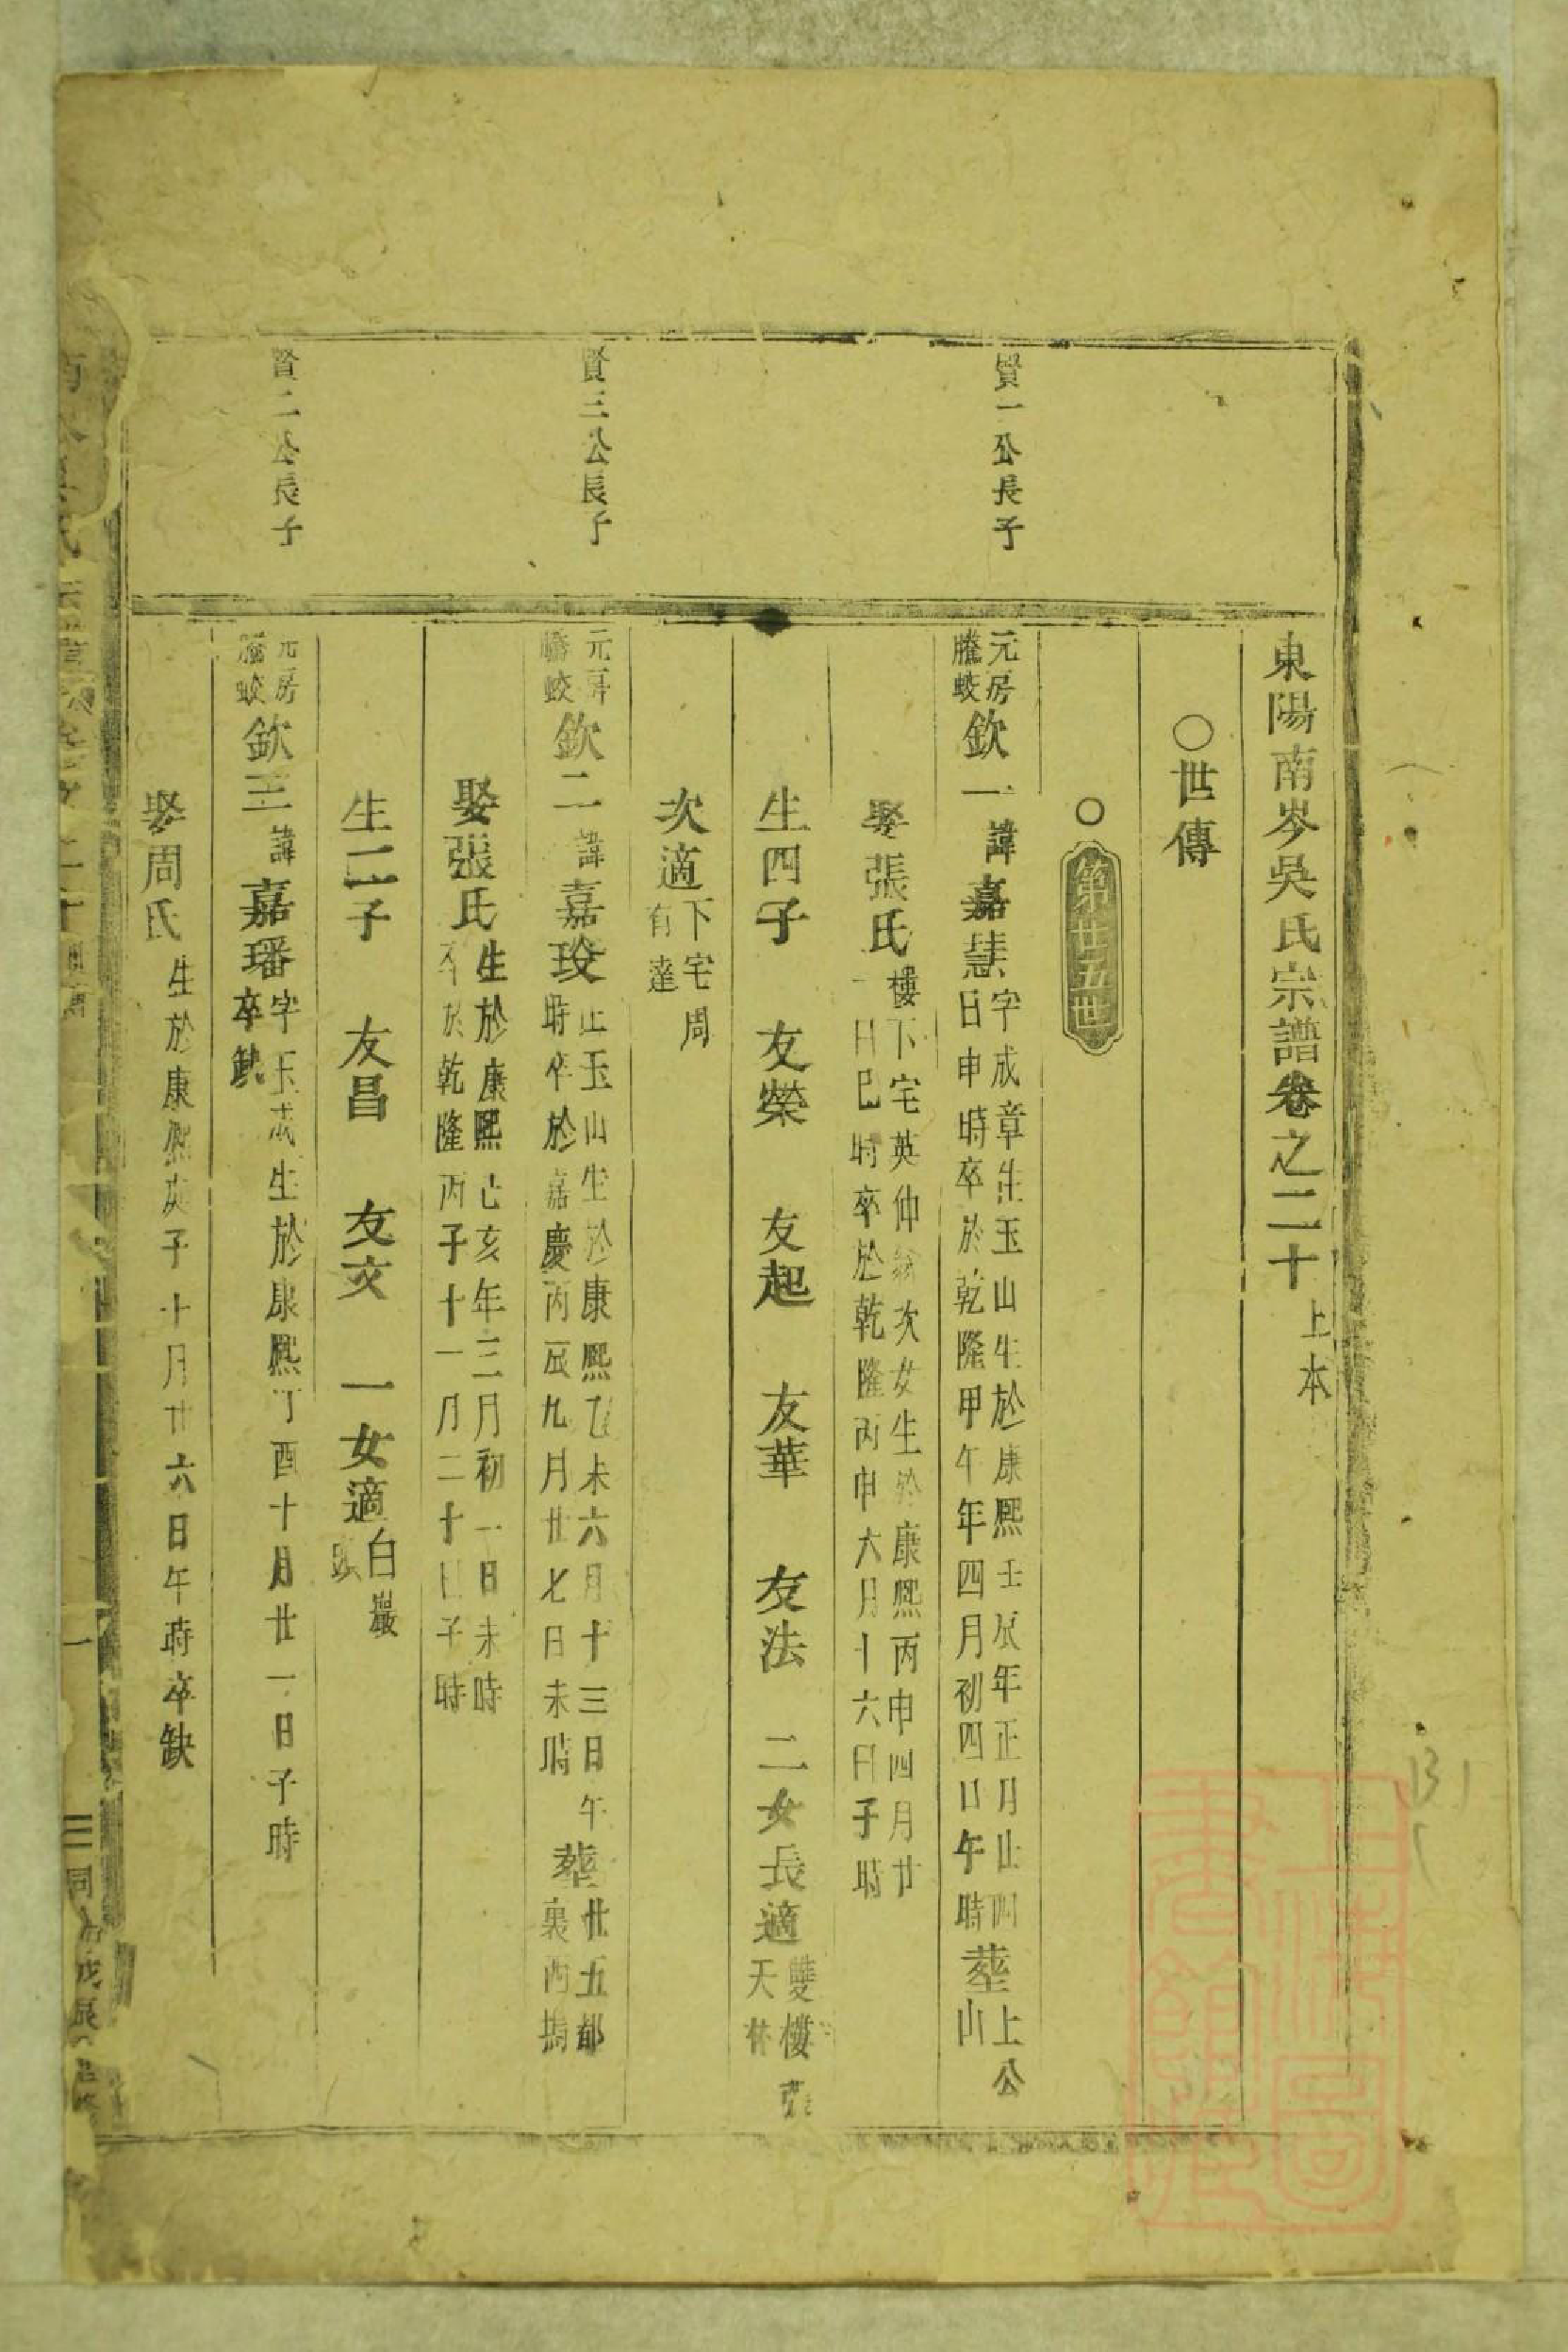 東陽南岑吳氏宗譜卷之二十上本
○世傳
○第廿五世
賢一公長子
元房騰蛟欽一諱嘉慧字成章生玉山生於康熙壬辰年正月廿四日申時卒於乾隆甲午年四月初四日午時葬上公山
娶張氏樓下宅英仲次女生於康熙丙申四月廿一日巳時卒於乾隆丙申六月十六日子時
生四子 友榮 友起 友華 友法 二女長適雙樓天林
次適下宅周有達
賢三公長子
元房騰蛟欽二諱嘉玫玉山生於康熙乙未六月十三日午時卒於嘉慶丙辰九月廿七日未時葬廿五都裏西塢
娶張氏生於康熙己亥年三月初一日未時卒於乾隆丙子十一月二十日子時
生二子 友昌 友文 一女適白巖
賢二公長子
元房騰蛟欽三諱嘉璠字玉成生於康熙丁酉十月廿一日子時卒缺
娶周氏生於康熙庚子十月廿六日午時卒缺